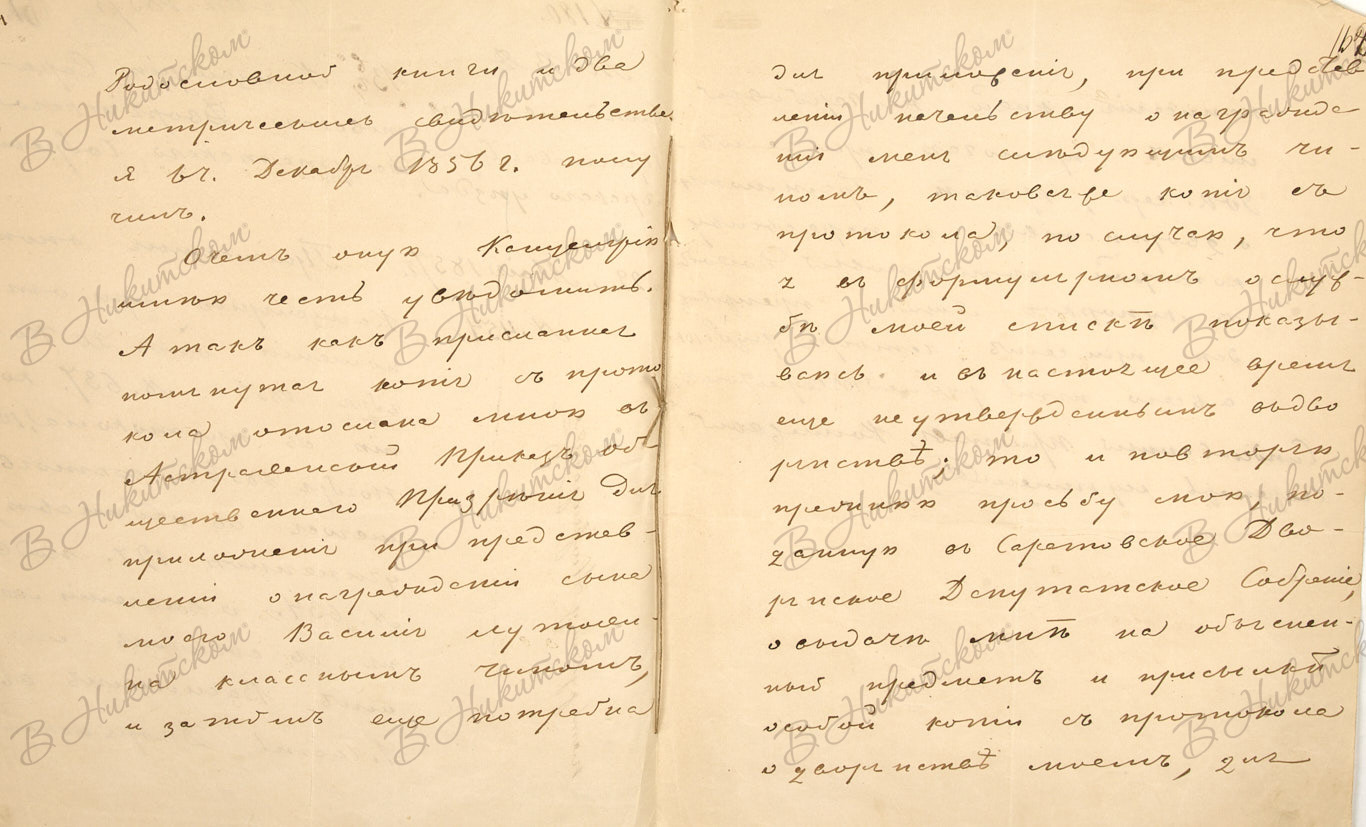 Родословной книги и два
метрическихъ свидѣтельства
я въ Декабрѣ 1856 г. полу
чилъ.
О чемъ оную Канцелярію
имѣю честь увѣдомить.
А такъ какъ присланная
помянутая копія съ прото
кола отослана мною въ
Астраханскій Приказъ об-
щественнаго Призрѣнія для
приложенія при представ-
леніи о награжденіи сына
моего Василія
на класснымъ чиномъ,
и затѣмъ еще потребна
162
для приложенія, при представ
леніи начальству о награжде
ніи меня слѣдующимъ чи-
номъ, таковая же копія съ
протокола, по случаю, что
я въ формулярномъ о служ-
бѣ моей спискѣ показы-
ваюсь и въ настоящее время
еще неутвержденнымъ въ дво
рянствѣ; то и повторяю
прежнюю просьбу мою, по-
данную въ Саратовское Дво-
рянское Депутатское Собраніе,
о выдачѣ мнѣ на объяснен-
ный предметъ и присылкѣ
особой копіи съ протокола
о дворянствѣ моемъ, для
В Никитском